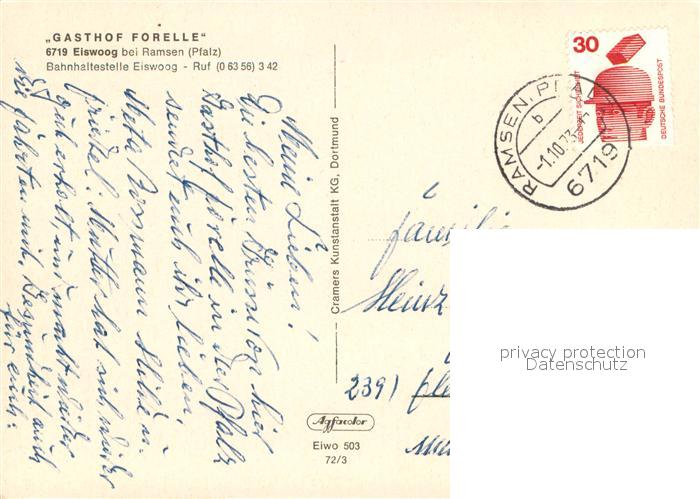 „GASTHOF FORELLE"
6719 Eiswoog bei Ramsen (Pfalz)
Bahnhaltestelle Eiswoog - Ruf (0 63 56) 3 42
Meine Lieben!
Die besten Grüsse von hier
Gasthof Forelle in der Pfalz
sendet euch ihr Lieben,
Meta
Friedel. Mutter hat sich wieder
gut erholt und macht wieder
die Fahrten mit. Gesundheit auch
für euch.
Cramers Kunstanstalt KG, Dortmund
Agfacolor
Eiwo 503
72/3
30
JEDERZEIT SICHERHEIT
DEUTSCHE BUNDESPOST
RAMSEN, PFALZ
b
-1.10.73
6719
Familie
Heinz
2391
privacy protection
Datenschutz